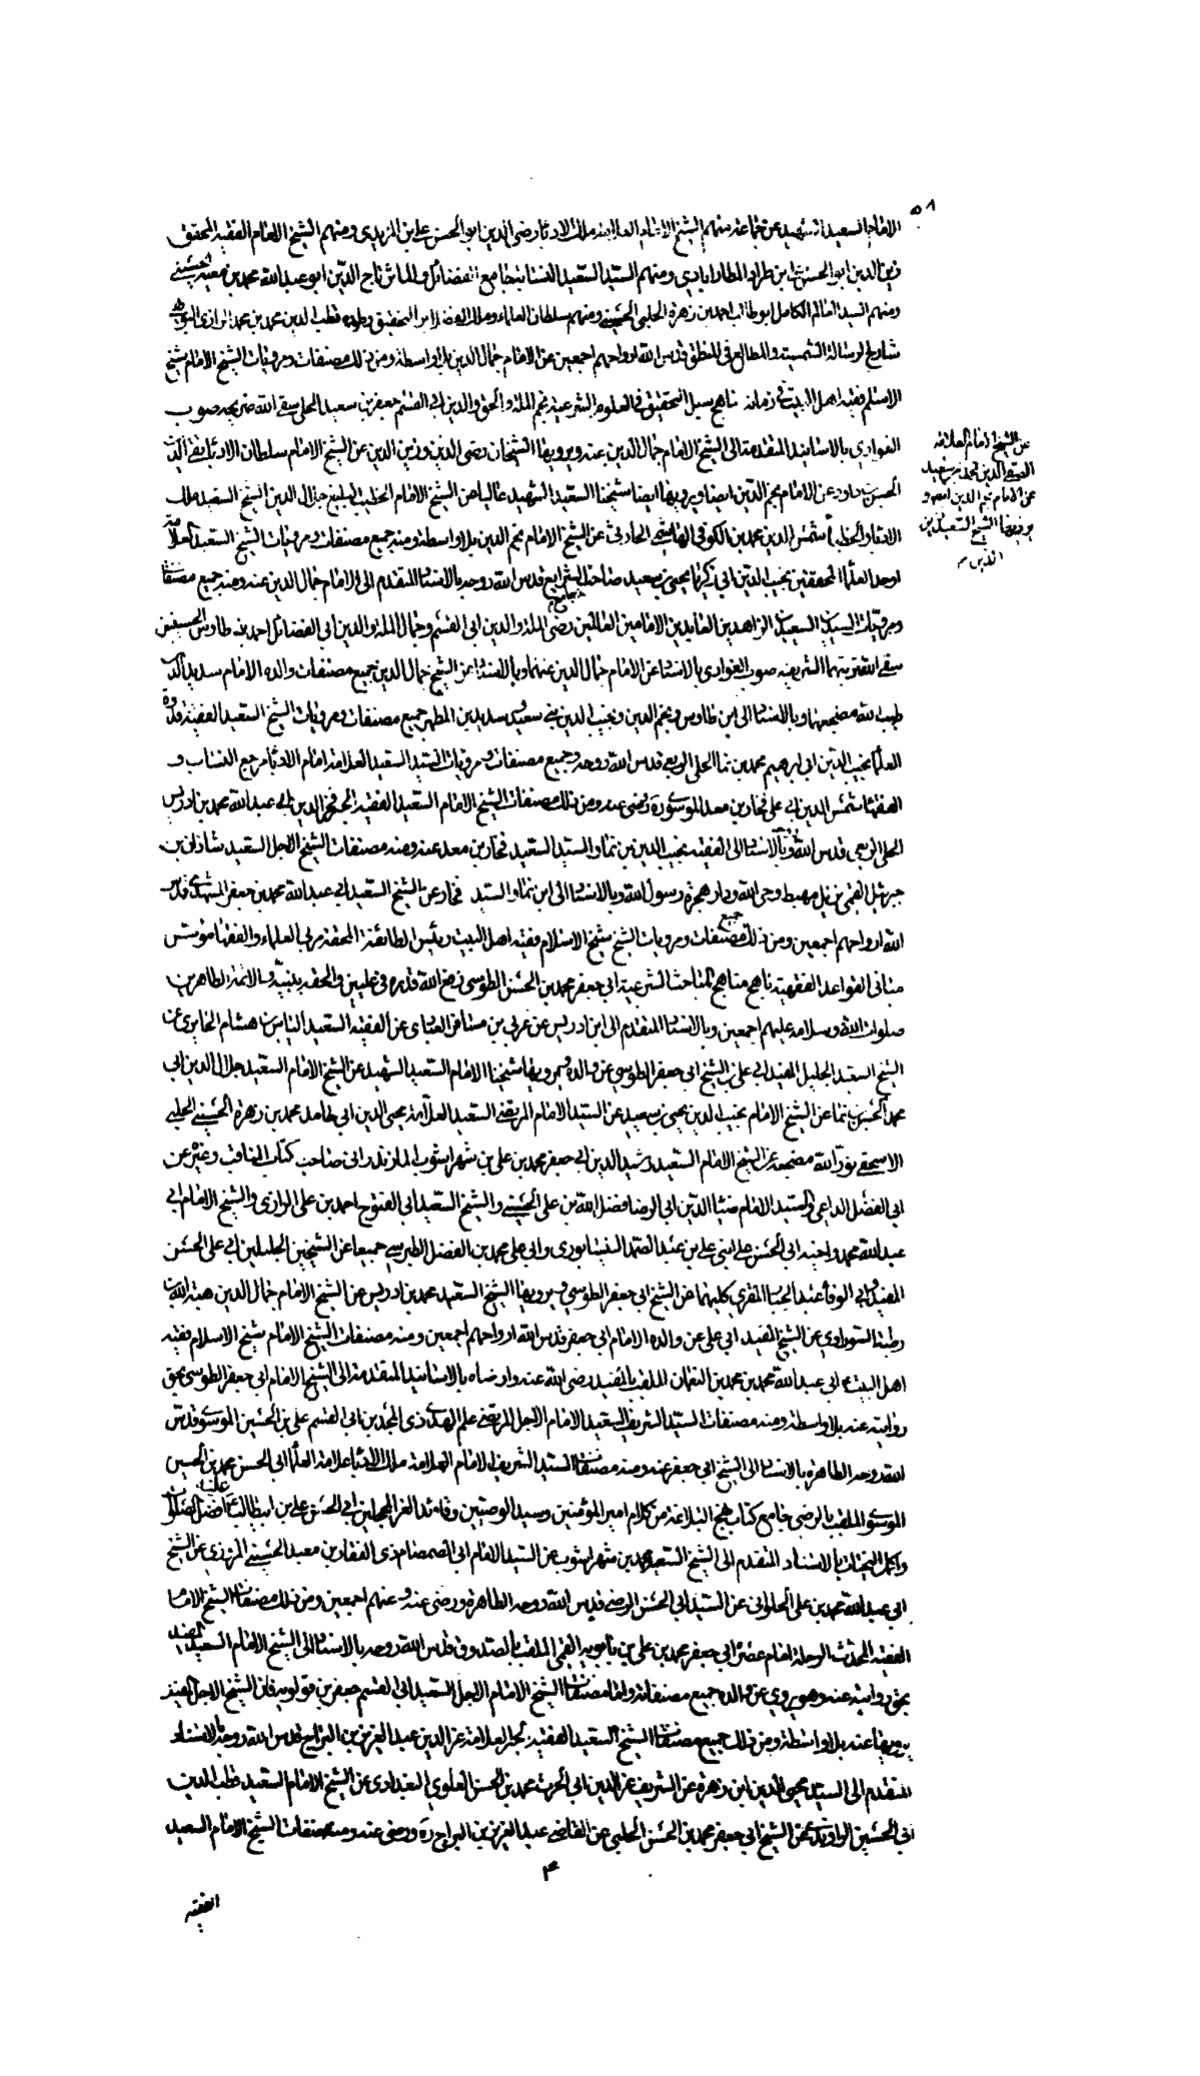 ٥٨
الامام السعيد الشهيد عن جماعة منهم الشيخ الامام العلامة ملك الادباء رضى الدين ابو الحسن على بن المزيدى ومنهم الشيخ الامام الفقيه المحقق
زين الدين ابو الحسن على بن طراد المطارابادى ومنهم السيد السعيد النسابة جامع الفضائل والمآثر تاج الدين ابو عبد الله محمد بن معية الحسينى
ومنهم السيد العالم الكامل ابو طالب احمد بن زهرة الحلبى الحسينى ومنهم سلطان العلماء وملك الفضلاء التحقيق قطب الدين محمد بن محمد الرازى
شارح الرسالة الشمسية والمطالع فى المنطق قدس الله ارواحهم اجمعين عن الامام جمال الدين بلا واسطة ومن ذلك مصنفات ومرويات الشيخ الامام شيخ
الاسلم فقيه اهل البيت فى زمانه ناهج سبل التحقيق فى العلوم الشرعية نجم الملة والحق والدين ابى القسم جعفر بن سعيد الحلى سقى الله ضريحه صوب
الغوادى بالاسانيد المتقدمة الى الشيخ الامام جمال الدين عنه ويرويها الشيخان رضى الدين وزين الدين عن الشيخ الامام سلطان الادباء تقى الدين
الحسن بن داود عن الامام نجم الدين ايضا ويرويها ايضا شيخنا السعيد الشهيد عاليا عن الشيخ الامام الخطيب البليغ جلال الدين الشيخ السعيد ملك
الادباء شمس الدين محمد بن الكوفى الهاشمى الحارثى عن الشيخ الامام نجم الدين بلا واسطة ومنه جميع مصنفات ومرويات الشيخ السعيد العلامة
اوحد العلماء المحققين نجيب الدين ابى زكريا يحيى بن سعيد صاحب جامع الشرايع قدس الله روحه بالاسناد المتقدم الى الامام جمال الدين عنه ومنه جميع مصنفات
ومرويات السيدين السعيدين الزاهدين العابدين الامامين العالمين رضى الملة والدين ابى القسم وجمال الملة والدين ابى الفضائل احمد بنى طاوس الحسنيين
سقى الله تربتهما الشريفة صوب الغوادى بالاسناد عن الامام جمال الدين عنهما وبالاسناد عن الشيخ جمال الدين جميع مصنفات والده الامام سديد الدين
طيب الله مضجعهما وبالاسناد الى ابن طاوس ونجم الدين ونجيب الدين بنى سعيد وسديد بن المطهر جميع مصنفات ومرويات الشيخ السعيد الفقيه قدوة
العلماء نجيب الدين ابى ابرهيم محمد بن نما الحلى الربعى قدس الله روحه وجميع مصنفات ومرويات السيد السعيد العلامة امام الادباء مرجع النساب و
الفقهاء شمس الدين ابى على فخار بن معد الموسوى رضى عنه ومن ذلك مصنفات الشيخ الامام السعيد الفقيه فخر الدين ابى عبد الله محمد بن ادريس
الحلى الربعى قدس الله وبالاسناد الى الفقيه نجيب الدين بن نما والسيد السعيد فخار بن معد عنه ومنه مصنفات الشيخ الاجل السعيد شاذان بن
جبرئيل القمى نزيل مهبط وحى الله ودار هجرة رسول الله وبالاسناد الى ابن نما والسيد فخار عن الشيخ السعيد ابى عبد الله محمد بن جعفر المشهدى قدس
الله ارواحهم اجمعين ومن ذلك جميع مصنفات ومرويات الشيخ شيخ الاسلام فقيه اهل البيت رئيس الطائفة المحقة مربى العلماء والفقهاء مؤسس
مبانى القواعد الفقهية ناهج مناهج المباحث الشرعية ابى جعفر محمد بن الحسن الطوسى رفع الله قدره فى عليين والحقه بنبيه والائمة الطاهرين
صلوات الله وسلامه عليهم اجمعين وبالاسناد المتقدم الى ابن ادريس عن عربى بن مسافر العبادى عن الفقيه السعيد الياس بن هشام الحايرى عن
الشيخ السعيد الجليل المفيد ابى على بن الشيخ ابى جعفر الطوسى عن والده ويرويها شيخنا الامام السعيد الشهيد عن الشيخ الامام السعيد جلال الدين ابى
محمد الحسن بن نما عن الشيخ الامام نجيب الدين يحيى بن سعيد عن السيد الامام المرتضى السعيد العلامة محيى الدين ابى حامد محمد بن زهرة الحسينى الحلبى
الاسحقى نور الله مضجعه عن الشيخ الامام السعيد رشيد الدين ابى جعفر محمد بن على بن شهراشوب المازندرانى صاحب كتاب المناقب وغيره عن
ابى الفضل الداعى والسيد الامام ضياء الدين ابى الرضا فضل الله بن على الحسينى والشيخ السعيد ابى الفتوح احمد بن على الرازى والشيخ الامام ابى
عبد الله محمد واخيه ابى الحسن على ابنى على بن عبد الصمد النيشابورى وابى على محمد بن الفضل الطبرسى جميعا عن الشيخين الجليلين ابى على الحسن
المفيد وابى الوفا عبد الجبار المقرى كليهما عن الشيخ ابى جعفر الطوسى ويرويها الشيخ السعيد محمد بن ادريس عن الشيخ الامام جمال الدين هبة الله بن
رطبة السوراوى عن الشيخ المفيد ابى على عن والده الامام ابى جعفر قدس الله ارواحهم اجمعين ومنه مصنفات الشيخ الامام شيخ الاسلام فقيه
اهل البيت ابى عبد الله محمد بن محمد بن النعمان الملقب بالمفيد رضى الله عنه وارضاه بالاسانيد المتقدمة الى الشيخ الامام ابى جعفر الطوسى بحق
روايته عنه بلا واسطة ومنه مصنفات السيد الشريف السعيد الامام الاجل المرتضى علم الهدى ذى المجدين ابى القسم على بن الحسين الموسوى قدس
الله روحه الطاهرة بالاسناد الى الشيخ ابى جعفر عنه ومنه مصنفات السيد الشريف الامام العلامة ملك الادباء علامة العلماء ابى الحسن محمد بن الحسين
الموسوى الملقب بالرضى جامع كتاب نهج البلاغة من كلام امير المؤمنين وسيد الوصيين وقائد الغر المحجلين ابى الحسن على بن ابيطالب عليه افضل الصلوات
واكمل التحيات بالاسناد المتقدم الى الشيخ السعيد محمد بن شهراشوب عن السيد الامام ابى الصمصام ذى الفقار بن معبد الحسينى المروزى عن الشيخ
ابى عبد الله محمد بن على الحلوانى عن السيد ابى الحسن الرضى قدس الله روحه الطاهرة ورضى عنه وعنهم اجمعين ومن ذلك مصنفات الشيخ الامام
الفقيه المحدث الرحلة امام عصره ابى جعفر محمد بن على بن بابويه القمى الملقب بالصدوق قدس الله روحه بالاسناد الى الشيخ الامام السعيد المفيد
بحق روايته عنه وهو يروى عن والده جميع مصنفاته واما مصنفات الشيخ الامام الاجل السعيد ابى القسم جعفر بن قولويه فان الشيخ الاجل المفيد
يرويها عنه بلا واسطة ومن ذلك جميع مصنفات الشيخ السعيد الفقيه الحبر العلامة عز الدين عبد العزيز بن البراج قدس الله روحه بالاسناد
المتقدم الى السيد محيى الدين ابن زهرة عن الشريف عز الدين ابى الحرث محمد بن الحسن العلوى البغدادى عن الشيخ الامام السعيد قطب الدين
ابى الحسين الراوندى عن الشيخ ابى جعفر محمد بن الحسن الحلبى عن القاضى عبد العزيز بن البراج ره ورضى عنه ومنه مصنفات الشيخ الامام السعيد
الفقيه
عن الشيخ الامام العلامة
صفى الدين محمد بن سعيد
عن الامام نجم الدين
يرويها الشيخ السعيد
الدين